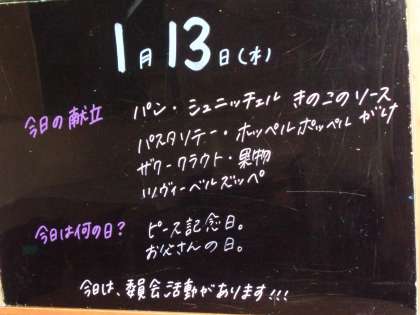 1月13日(水)
今日の献立 パン・シュニッチェル きのこのソースがけ
パスタソテー・ホッペルポッペル
ザワークラウト・果物
ツヴィーベルズッペ
今日は何の日? ピース記念日。
お父さんの日。
今日は、委員会活動があります!!!